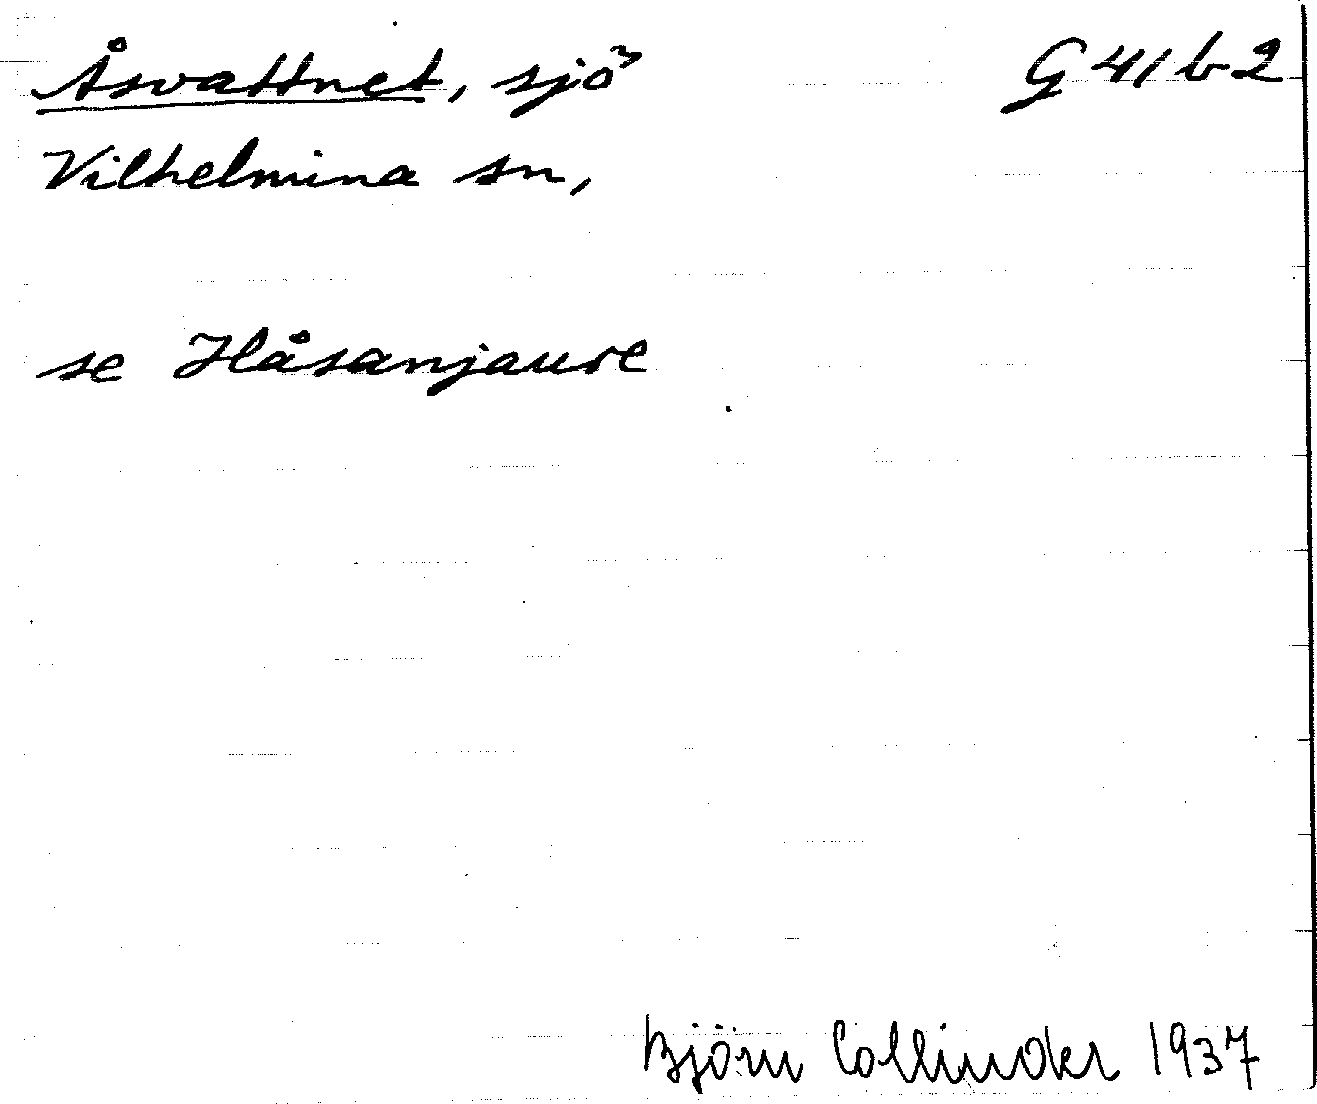 Åsvattnet, sjö G 41 b 2
Vilhelmina sn,
se Håsanjaure
Björn Collinder 1937